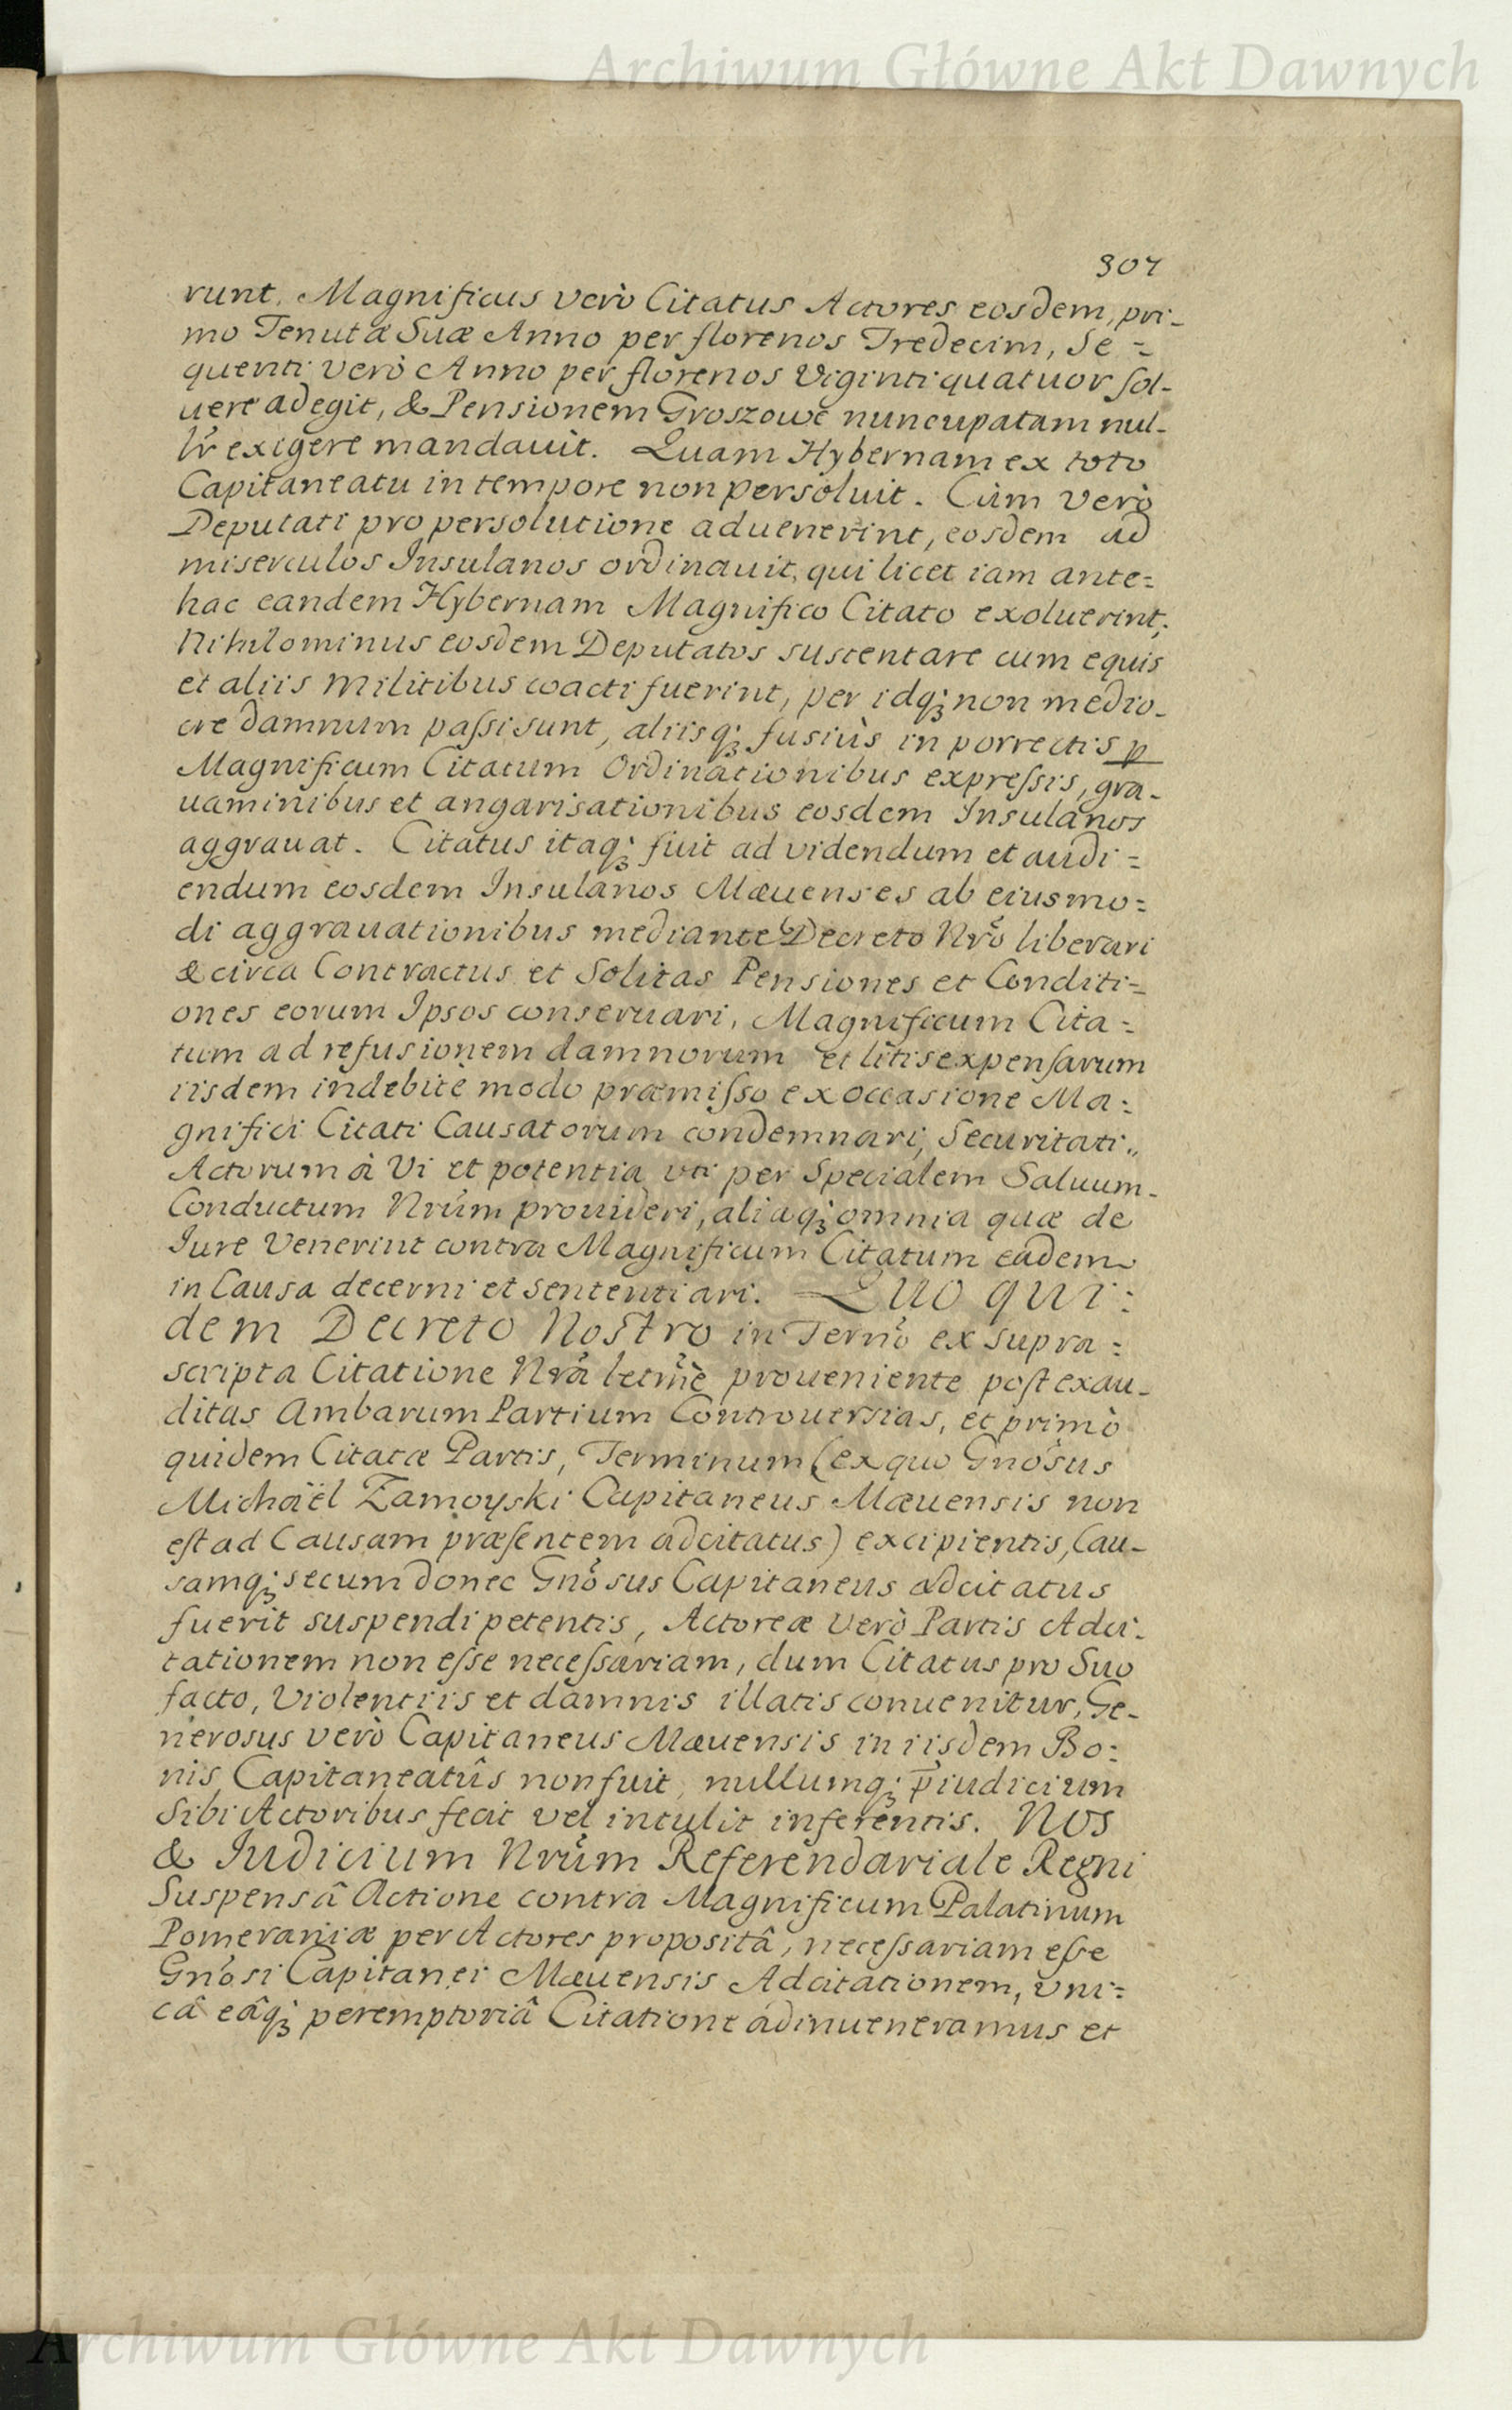 Archiwum Główne Akt Dawnych
307
runt. Magnificus verò Citatus Actores eosdem, pri-
mo Tenutæ Suæ Anno per florenos Tredecim, Se=
quenti verò Anno per florenos Viginti quatuor sol-
uere adegit, & Pensionem Groszowe nuncupatam nul-
lr̃ exigere mandauit. Quam Hybernam ex toto
Capitaneatu in tempore non persoluit. Cùm verò
Deputati pro persolutione aduenerint, eosdem ad
miserculos Insulanos ordinauit, qui licet iam ante=
hac eandem Hybernam Magnifico Citato exoluerint;
Nihilominus eosdem Deputatos sustentare cum equis
et aliis Militibus coacti fuerint, per idq; non medio-
cre damnum passi sunt, aliisq; fusiùs in porrectis p
Magnificum Citatum Ordinationibus expressis, gra-
uaminibus et angarisationibus eosdem Insulanos
aggrauat. Citatus itaq; fuit ad videndum et audi=
endum eosdem Insulanos Mæuenses ab eiusmo=
di aggrauationibus mediante Decreto Nrõ liberari
& circa Contractus et Solitas Pensiones et Conditi=
ones eorum Ipsos conseruari, Magnificum Cita=
tum ad refusionem damnorum et litis expensarum
iisdem indebitè modo præmisso ex occasione Ma=
gnifici Citati Causatorum condemnari, Securitati„
Actorum à Vi et potentia uti per Specialem Saluum-
Conductum Nrũm prouideri, aliaq; omnia quæ de
Iure Venerint contra Magnificum Citatum eadem
in Causa decerni et sententiari. Quo qui=
dem Decreto Nostro in Terño ex supra=
scripta Citatione Nrã letm̃è proueniente post exau-
ditas Ambarum Partium Controuersias, et primò
quidem Citatæ Partis, Terminum (ex quo Gnõsus
Michaël Zamoyski Capitaneus Mæuensis non
est ad Causam præsentem adcitatus) excipientis, Cau-
samq; secum donec Gnõsus Capitaneus adcitatus
fuerit suspendi petentis, Actoreæ verò Partis Adci-
tationem non esse necessariam, dum Citatus pro Suo
facto, Violentiis et damnis illatis conuenitur, Ge-
nerosus verò Capitaneus Mæuensis in iisdem Bo=
nis Capitaneatûs non fuit, nullumq; p̃iudicium
Sibi Actoribus fecit vel intulit inferentis. Nos
& Iudicium Nrũm Referendariale Regni
Suspensâ Actione contra Magnificum Palatinum
Pomeraniæ per Actores propositâ, necessariam esse
Gnõsi Capitanei Mæuensis Adcitationem, vni=
câ eâq; peremptoriâ Citatione adinueneramus et
Archiwum Główne Akt Dawnych